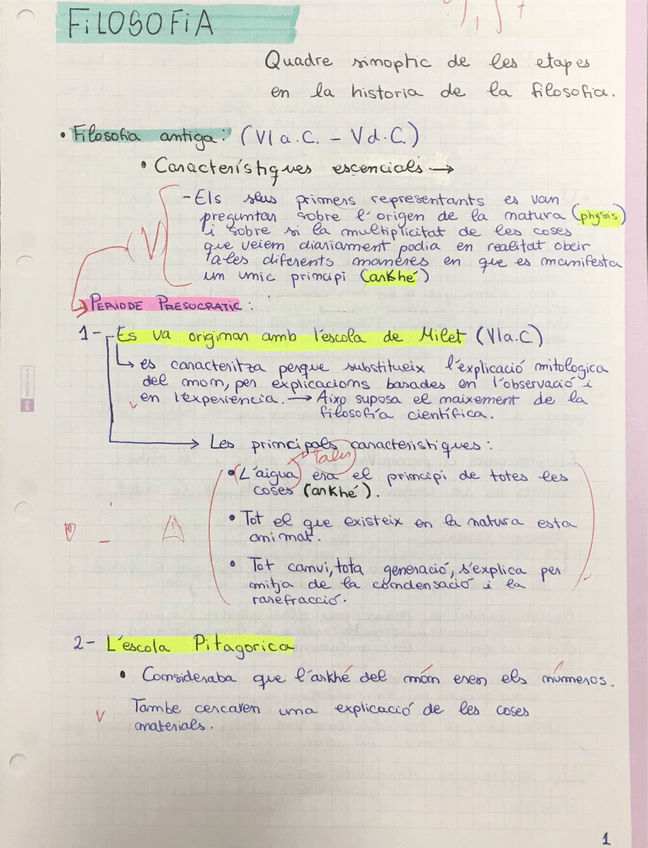 FiLOSOFiA
Quadre sinoptic de les etapes
en la historia de la filosofia.
• Filosofia antiga: (VI a.C. - V d.C.)
• Característiques escencials →
- Els seus primers representants es van
preguntar sobre l'origen de la natura (physis)
i sobre si la multiplicitat de les coses
que veiem diariament podia en realitat obeir
a les diferents maneres en que es manifesta
un unic principi (arkhé)
PERIODE PRESOCRATIC:
1- Es va originar amb l'escola de Milet (VI a.C)
es caracteritza perque substitueix l'explicació mitologica
del mon, per explicacions basades en l'observació i
en l'experiència. → Aixo suposa el naixement de la
filosofía científica.
→ Les principals caracteristiques:
Tales
• L'aigua era el principi de totes les
coses (arkhé).
• Tot el que existeix en la natura esta
animat.
• Tot canvi, tota generació, s'explica per
mitja de la condensació i la
rarefracció.
2- L'escola Pitagorica
• Consideraba que l'arkhé del món eren els números.
Tambe cercaven una explicació de les coses
materials.
1